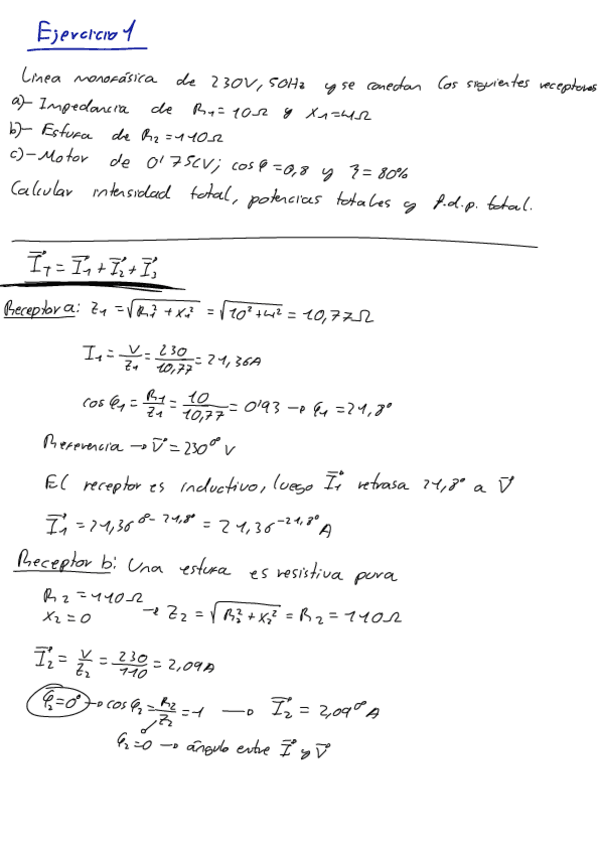 Ejercicio 1
Linea monofásica de 230V, 50Hz y se conectan los siguientes receptores
a)- Impedancia de R₁=10Ω y X₁=4Ω
b)- Estufa de R₂=110Ω
c)- Motor de 0'75CV; cosφ=0,8 y η=80%
Calcular intensidad total, potencias totales y f.d.p. total.
I⃗T = I⃗₁ + I⃗₂ + I⃗₃
Receptor a: Z₁ = √(R₁² + X₁²) = √(10² + 4²) = 10,77Ω
I₁ = V/Z₁ = 230/10,77 = 21,36A
cos φ₁ = R₁/Z₁ = 10/10,77 = 0'93 → φ₁ = 21,8°
Referencia → V⃗ = 230^0° V
El receptor es inductivo, luego I⃗₁ retrasa 21,8° a V⃗
I⃗₁ = 21,36^0-21,8° = 21,36^-21,8° A
Receptor b: Una estufa es resistiva pura
R₂ = 110Ω
X₂ = 0 → Z₂ = √(R₂² + X₂²) = R₂ = 110Ω
I⃗₂ = V/Z₂ = 230/110 = 2,09A
φ₂ = 0° → cos φ₂ = R₂/Z₂ = 1 → I⃗₂ = 2,09^0° A
φ₂ = 0 → ángulo entre I⃗ y V⃗